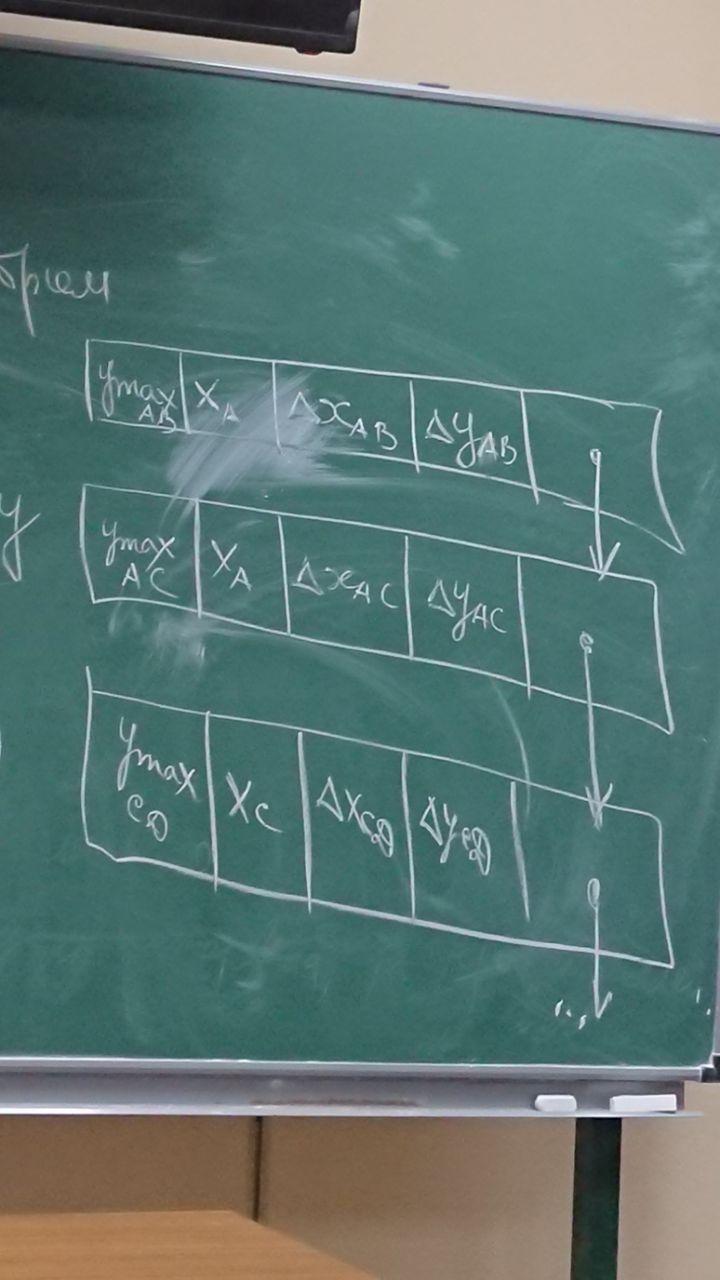 ymax AB XA ΔxAB ΔyAB
y
ymax AC XA ΔxAC ΔyAC
ymax CD XC ΔXCD ΔyCD
...